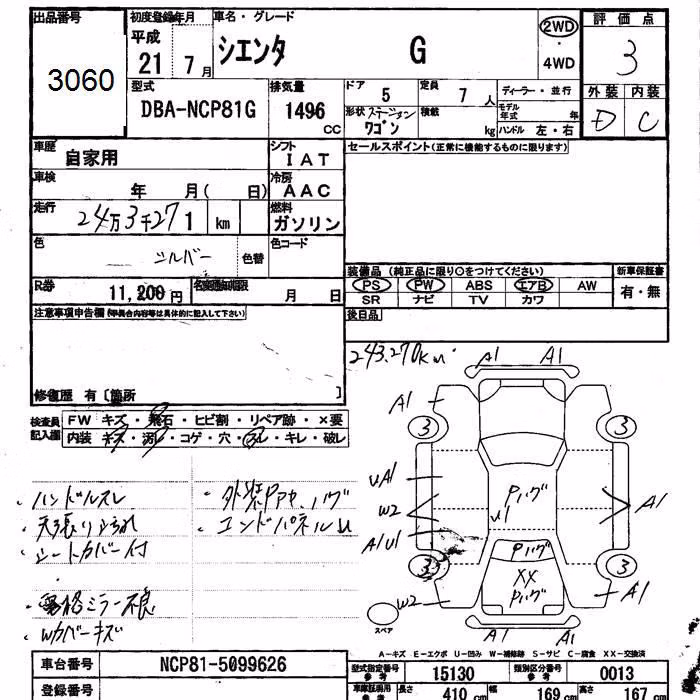 出品番号
3060
初度登録年月
平成
21 7月
車名・グレード
シエンタ G
2WD
・
4WD
評価点
3
外装 内装
D C
型式
DBA-NCP81G
排気量
1496
CC
ドア
5
定員
7 人
形状 ステーション
ワゴン
積載
kg
ディーラー・並行
モデル
年式 年
ハンドル 左・右
車歴
自家用
シフト
IAT
セールスポイント(正常に機能するものに限ります)
車検
年 月( 日)
冷房
AAC
走行
24万3千271 km
燃料
ガソリン
色
シルバー
色替
色コード
装備品 (純正品に限り○をつけてください)
新車保証書
PS PW ABS エアB AW
SR ナビ TV カワ
有・無
R券
11,200円
名変期限
月 日
後日品
注意事項申告欄(車具合内容等は具体的に記入して下さい)
修復歴 有〔箇所 〕
243,270km
検査員
記入欄
FW キズ・飛石・ヒビ割・リペア跡・×要
内装 キズ・汚れ・コゲ・穴・スレ・キレ・破レ
A1 A1
A1
3 3
UA1
W2
A1U1
Pハゲ
U1
A1
Pハゲ
XX
Pハゲ
3 3
W2
A1
A1 A1
スペア
・ハンドルスレ
・天張り汚れ
・シートカバー付
・外装Pアセ、ハゲ
・エンドパネルU
・電格ミラー不良
・Wカバーキズ
A-キズ E-エクボ U-凹み W-補修跡 S-サビ C-腐食 XX-交換済
車台番号
NCP81-5099626
型式指定番号
参考
15130
類別区分番号
参考
0013
登録番号
車庫証明用
参考
長さ
410 cm
幅
169 cm
高さ
167 cm